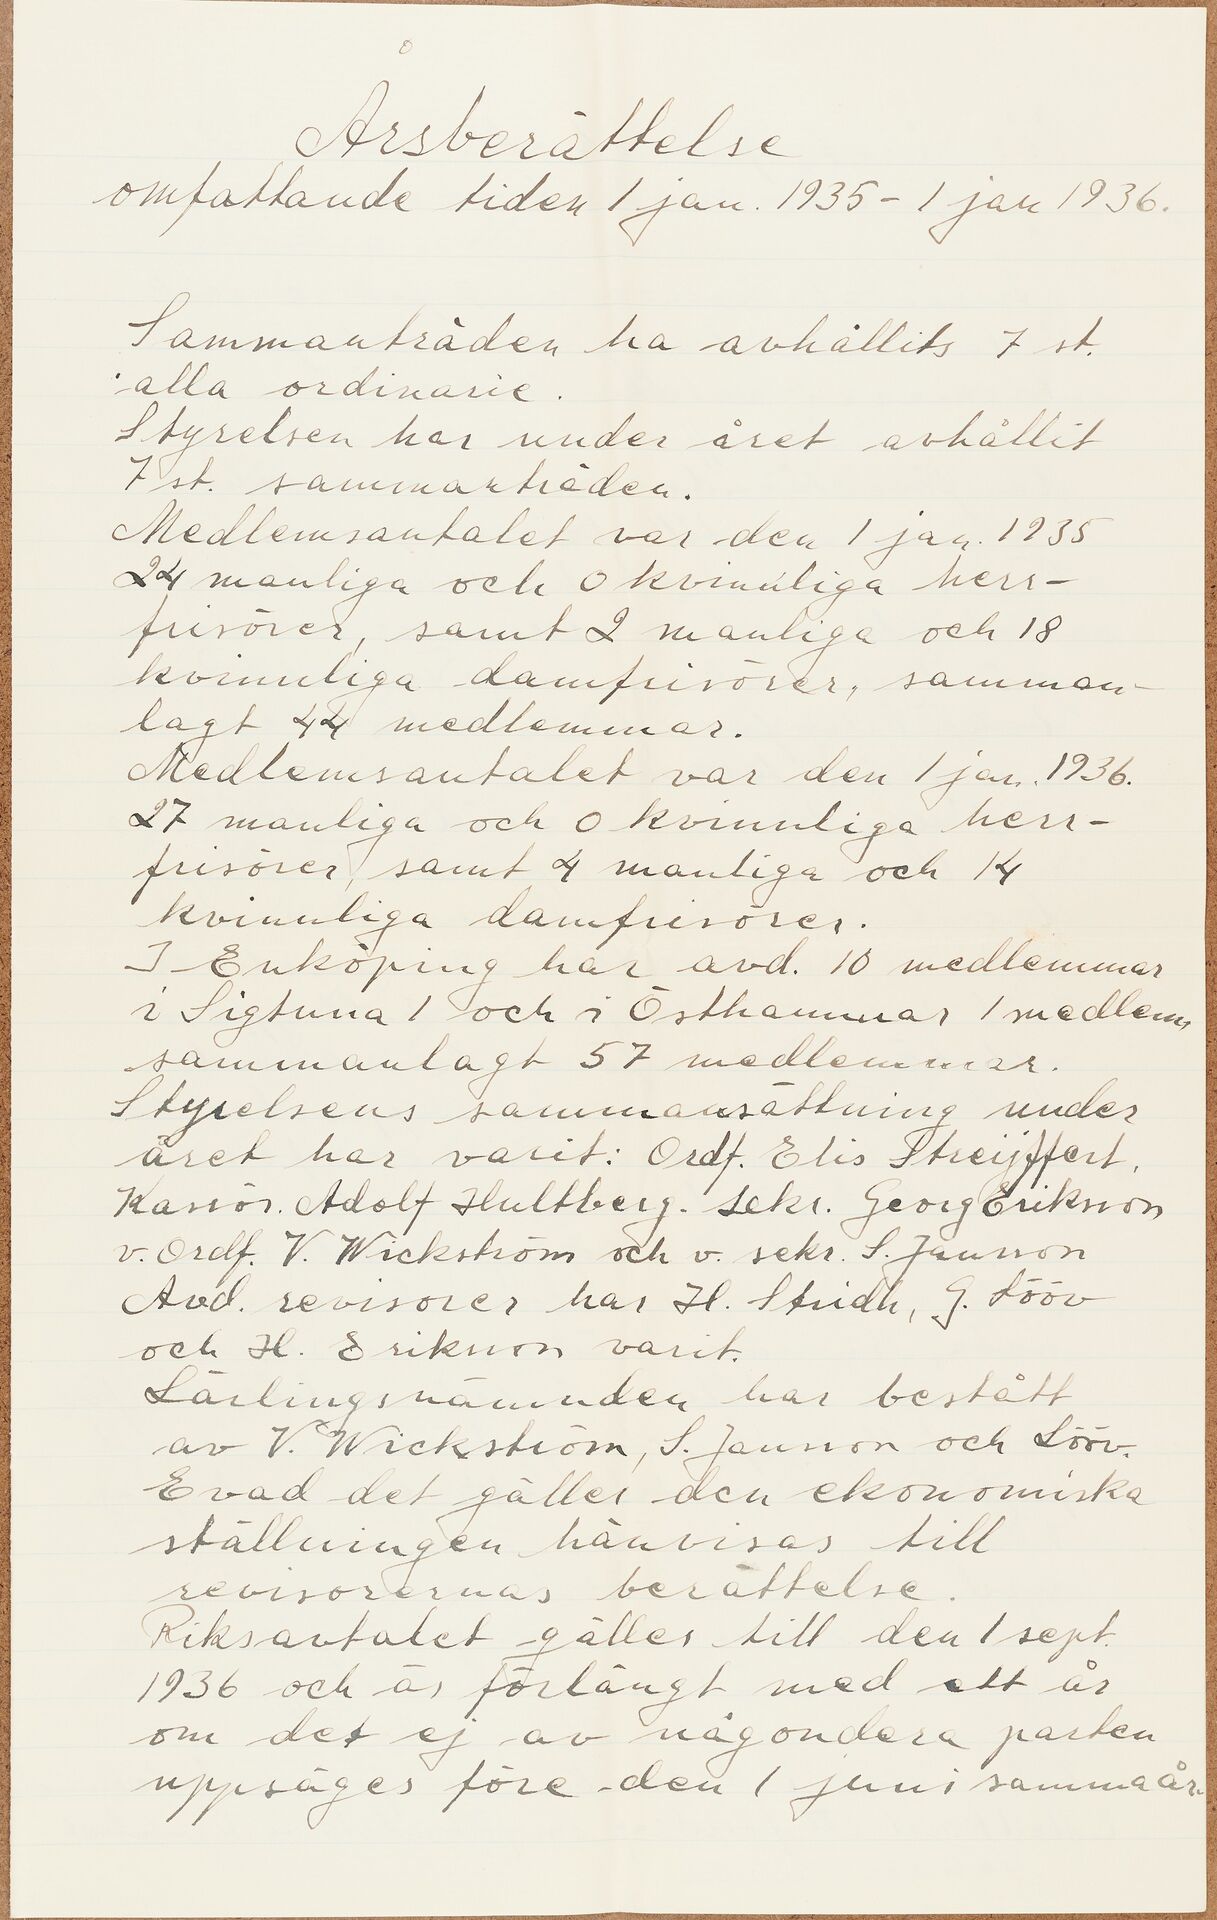 Årsberättelse
omfattande tiden 1 jan. 1935 - 1 jan 1936.
Sammanträden ha avhållits 7 st.
alla ordinarie.
Styrelsen har under året avhållit
7 st. sammanträden.
Medlemsantalet var den 1 jan. 1935
24 manliga och 0 kvinnliga herr-
frisörer, samt 2 manliga och 18
kvinnliga damfrisörer, samman-
lagt 44 medlemmar.
Medlemsantalet var den 1 jan. 1936.
27 manliga och 0 kvinnliga herr-
frisörer, samt 4 manliga och 14
kvinnliga damfrisörer.
I Enköping har avd. 10 medlemmar
i Sigtuna 1 och i Östhammar 1 medlem
sammanlagt 57 medlemmar.
Styrelsens sammansättning under
året har varit: Ordf. Elis Streijffert.
Kassör. Adolf Hultberg. Sekr. Georg Eriksson
v. Ordf. V. Wickström och v. sekr. S. Jansson
Avd. revisorer har H. Stridh, G. Lööv
och H. Eriksson varit.
Lärlingsnämnden har bestått
av V. Wickström, S. Jansson och Lööv.
Evad det gäller den ekonomiska
ställningen hänvisas till
revisorernas berättelse.
Riksavtalet gäller till den 1 sept.
1936 och är förlängt med ett år
om det ej av någondera parten
uppsäges före den 1 juni samma år.